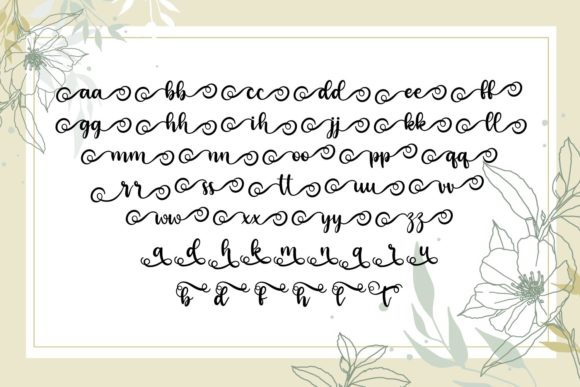 aa bb cc dd ee ff
gg hh ih jj kk ll
mm nn oo pp qq
rr ss tt uu vv
ww xx yy zz
a d h k m n q r u
b d f h l t